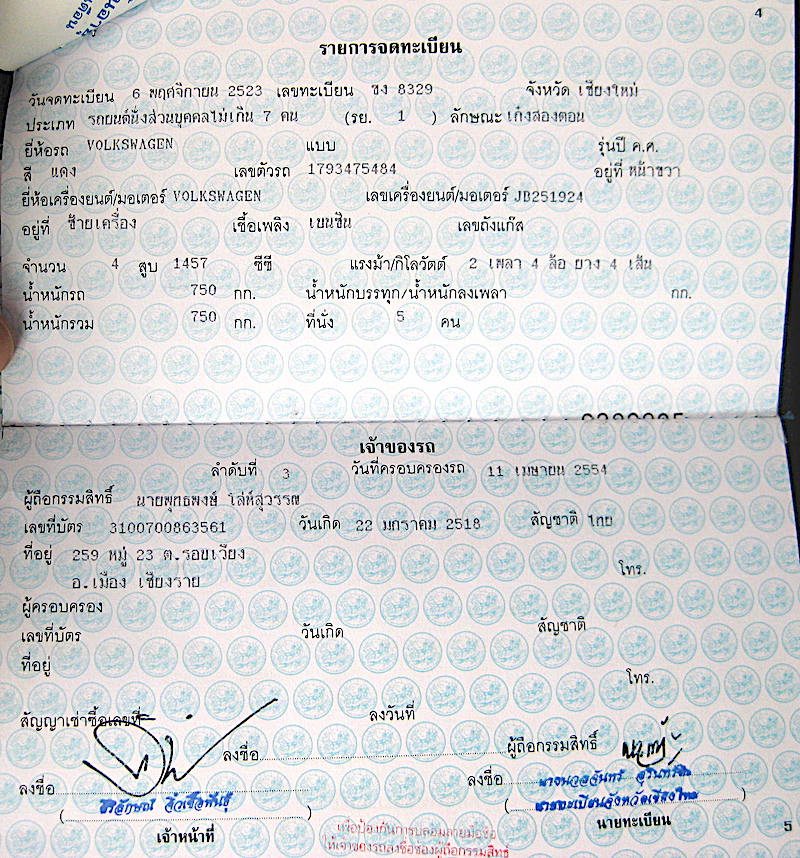 4
รายการจดทะเบียน
วันจดทะเบียน 6 พฤศจิกายน 2523 เลขทะเบียน ชง 8329 จังหวัด เชียงใหม่
ประเภท รถยนต์นั่งส่วนบุคคลไม่เกิน 7 คน (รย. 1 ) ลักษณะ เก๋งสองตอน
ยี่ห้อรถ VOLKSWAGEN แบบ รุ่นปี ค.ศ.
สี แดง เลขตัวรถ 1793475484 อยู่ที่ หน้าขวา
ยี่ห้อเครื่องยนต์/มอเตอร์ VOLKSWAGEN เลขเครื่องยนต์/มอเตอร์ JB251924
อยู่ที่ ซ้ายเครื่อง เชื้อเพลิง เบนซิน เลขถังแก๊ส
จำนวน 4 สูบ 1457 ซีซี แรงม้า/กิโลวัตต์ 2 เพลา 4 ล้อ ยาง 4 เส้น
น้ำหนักรถ 750 กก. น้ำหนักบรรทุก/น้ำหนักลงเพลา กก.
น้ำหนักรวม 750 กก. ที่นั่ง 5 คน
เจ้าของรถ
ลำดับที่ 3 วันที่ครอบครองรถ 11 เมษายน 2554
ผู้ถือกรรมสิทธิ์ นายพุทธพงษ์ โล่ห์สุวรรณ
เลขที่บัตร 3100700863561 วันเกิด 22 มกราคม 2518 สัญชาติ ไทย
ที่อยู่ 259 หมู่ 23 ต.รอบเวียง
อ.เมือง เชียงราย โทร.
ผู้ครอบครอง
เลขที่บัตร วันเกิด สัญชาติ
ที่อยู่
โทร.
สัญญาเช่าซื้อเลขที่ ลงวันที่
ลงชื่อ ผู้ถือกรรมสิทธิ์
ลงชื่อ ลงชื่อ
นายทะเบียนจังหวัดเชียงใหม่
เจ้าหน้าที่ นายทะเบียน
เพื่อป้องกันการปลอมลายมือชื่อ
ให้เจ้าของรถลงชื่อช่องผู้ถือกรรมสิทธิ์
5